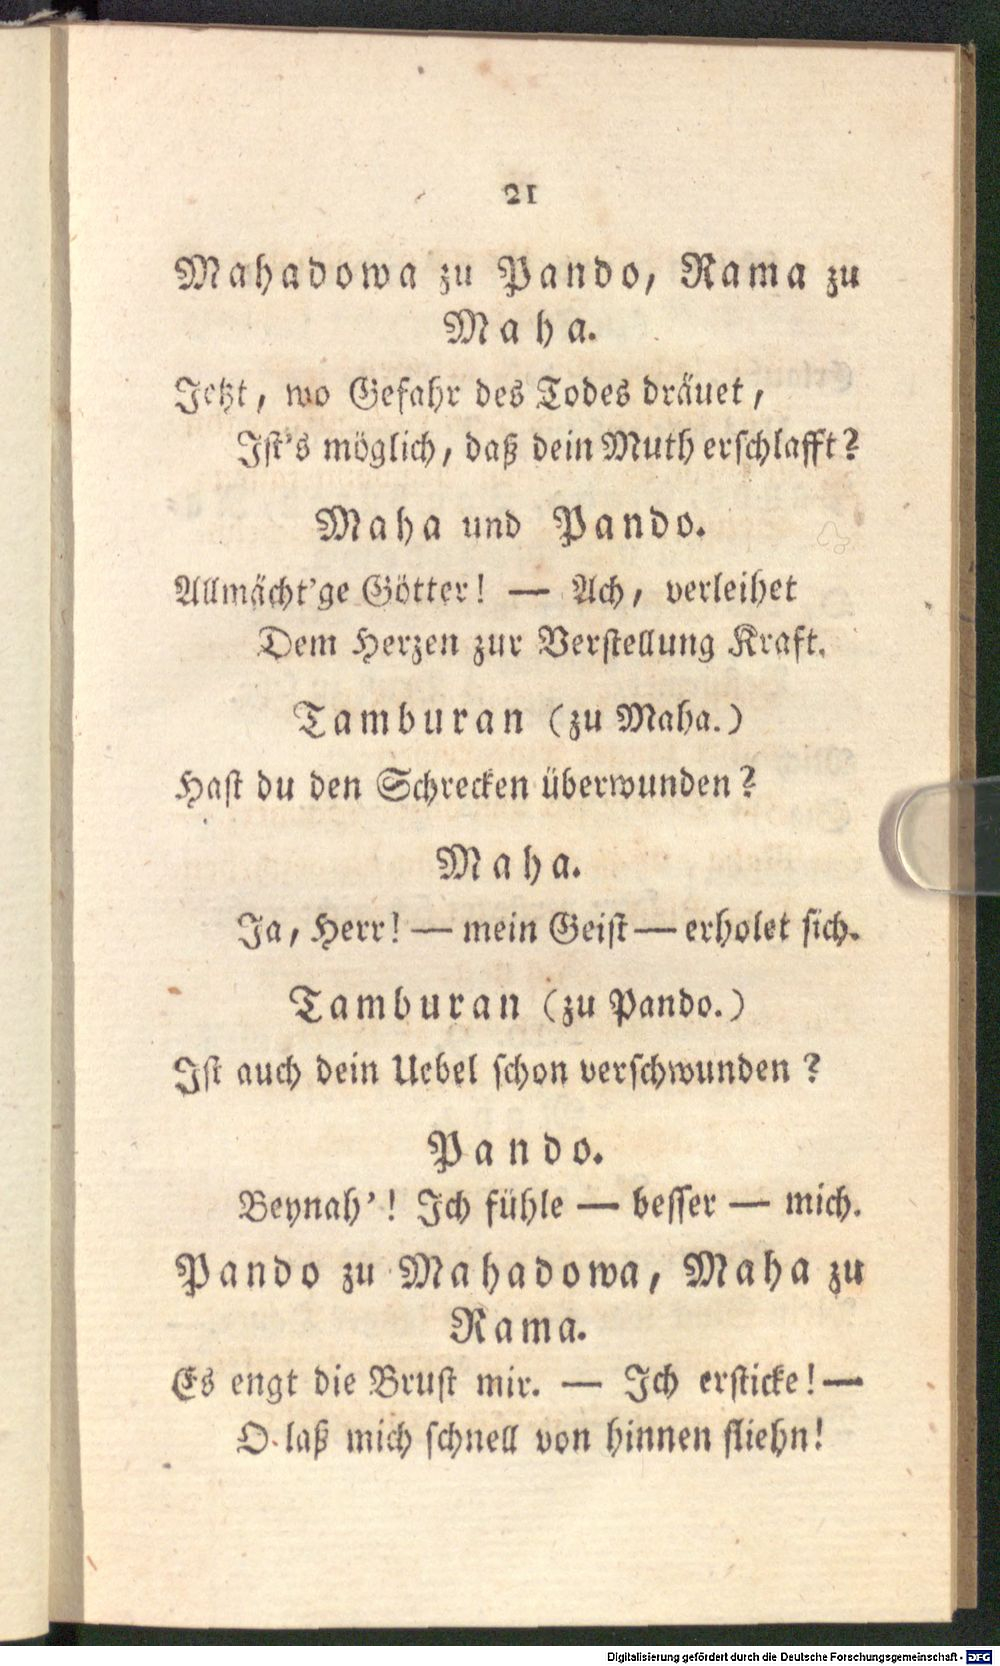 21
Mahadowa zu Pando, Rama zu
Maha.
Jetzt, wo Gefahr des Todes dräuet,
Ist's möglich, daß dein Muth erschlafft?
Maha und Pando.
Allmächt'ge Götter! — Ach, verleihet
Dem Herzen zur Verstellung Kraft.
Tamburan (zu Maha.)
Hast du den Schrecken überwunden?
Maha.
Ja, Herr! — mein Geist — erholet sich.
Tamburan (zu Pando.)
Ist auch dein Uebel schon verschwunden?
Pando.
Beynah'! Ich fühle — besser — mich.
Pando zu Mahadowa, Maha zu
Rama.
Es engt die Brust mir. — Ich ersticke! —
O laß mich schnell von hinnen fliehn!
Digitalisierung gefördert durch die Deutsche Forschungsgemeinschaft - DFG